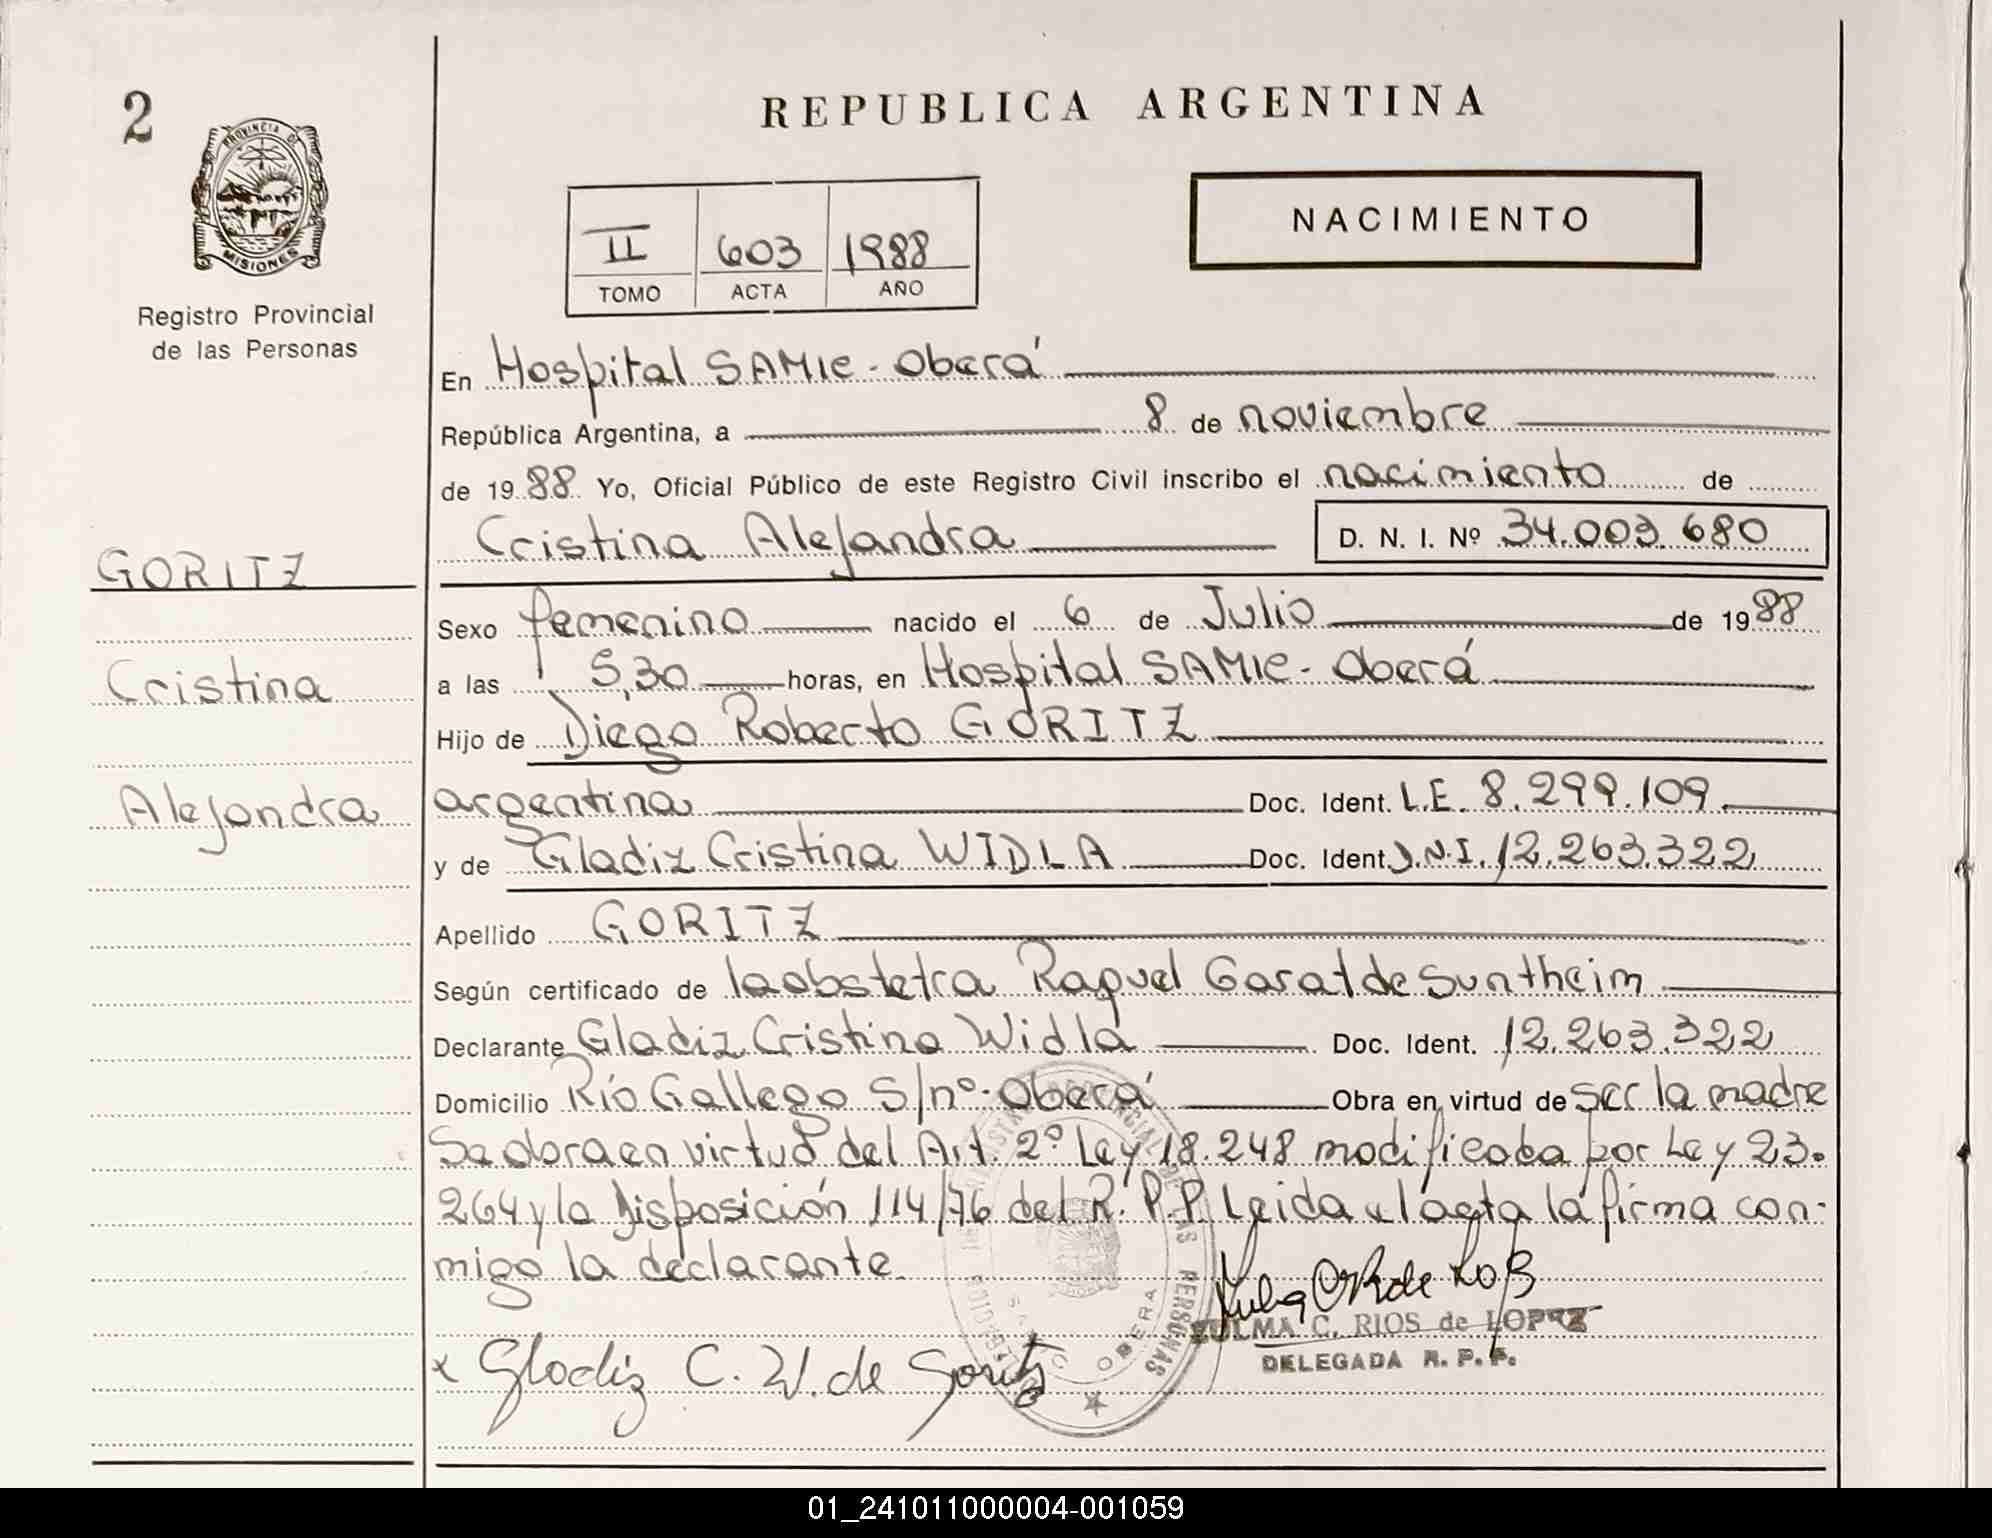 2
PROVINCIA DE
MISIONES
Registro Provincial
de las Personas
REPUBLICA ARGENTINA
II 603 1988
TOMO ACTA AÑO
NACIMIENTO
En Hospital SAMIC - Oberá
República Argentina, a 8 de noviembre
de 1988 Yo, Oficial Público de este Registro Civil inscribo el nacimiento de
Cristina Alejandra D. N. I. Nº 34.003.680
GORITZ
Cristina
Alejandra
Sexo femenino nacido el 6 de Julio de 1988
a las 5,30 horas, en Hospital SAMIC - Oberá
Hijo de Diego Roberto GORITZ
argentina Doc. Ident. L.E. 8.299.109
y de Gladiz Cristina WIDLA Doc. Ident. D.N.I. 12.263.322
Apellido GORITZ
Según certificado de la obstetra Raquel Garat de Suntheim
Declarante Gladiz Cristina Widla Doc. Ident. 12.263.322
Domicilio Río Gallego S/nº - Oberá Obra en virtud de ser la madre
Se obra en virtud del Art. 2º Ley 18.248 modificada por Ley 23.
264 y la Disposición 114/76 del R.P.P. Leida el acta la firma con-
migo la declarante.
ZULMA C. RIOS de LOPEZ
DELEGADA R. P. P.
x Gladiz C. W. de Goritz
OBERA
01_241011000004-001059